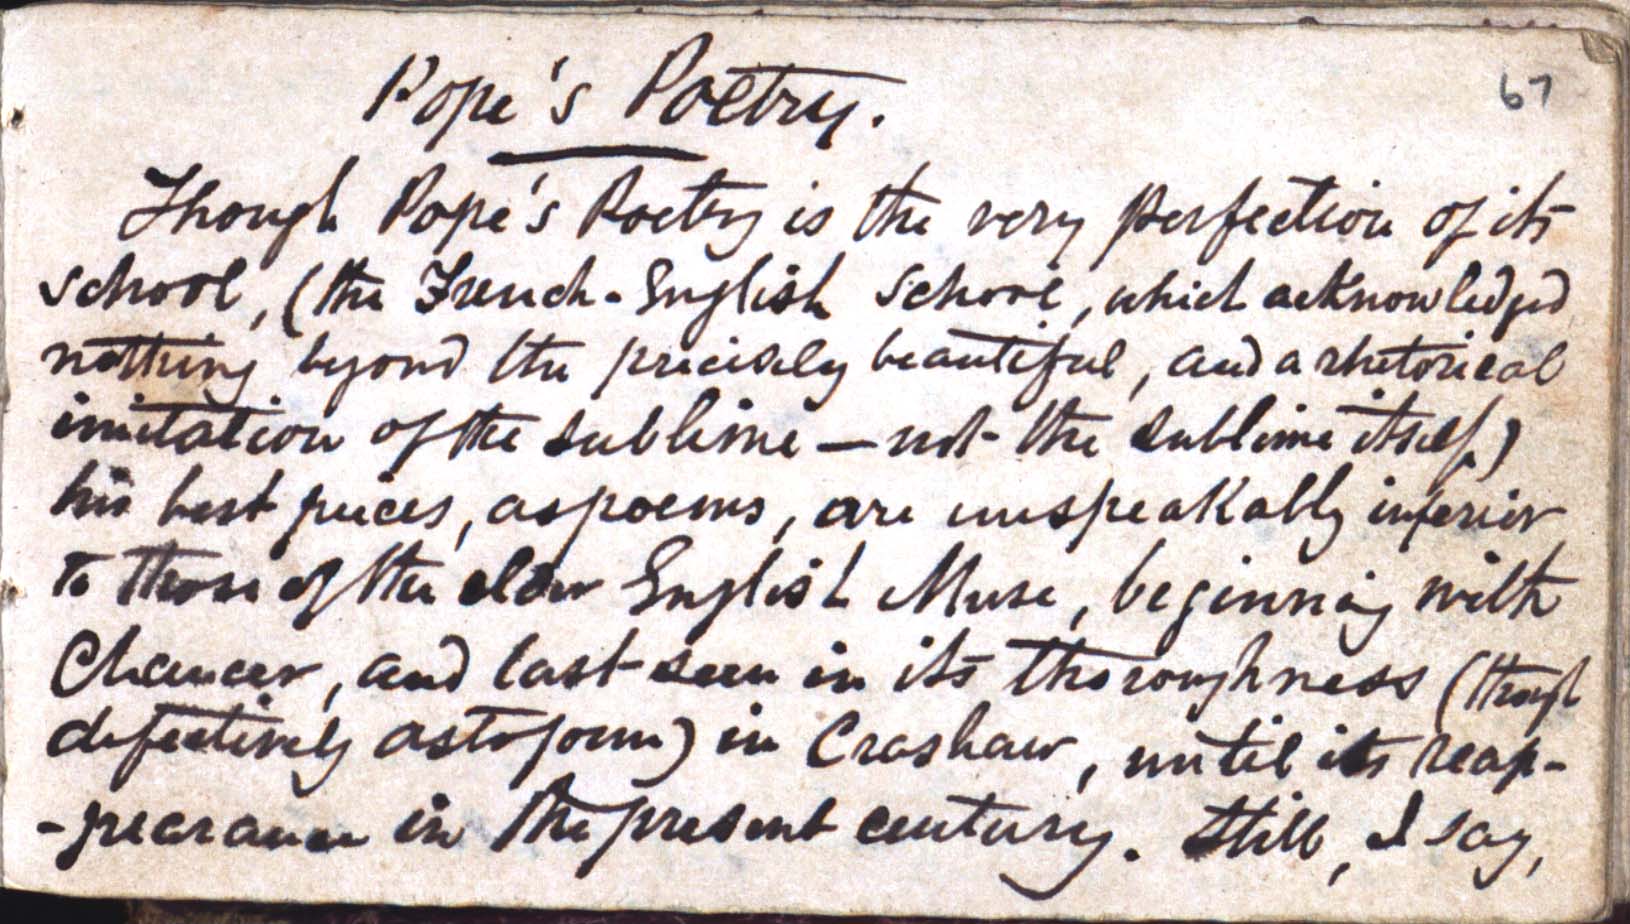 Pope's Poetry.
67
Though Pope's Poetry is the very perfection of its
school, (the French-English school, which acknowledged
nothing beyond the precisely beautiful, and a rhetorical
imitation of the sublime — not the sublime itself,)
his best pieces, as poems, are unspeakably inferior
to those of the elder English Muse, beginning with
Chaucer, and last seen in its thoroughness (though
defectively as to form) in Crashaw, until its reap-
-pearance in the present century. Still, I say,